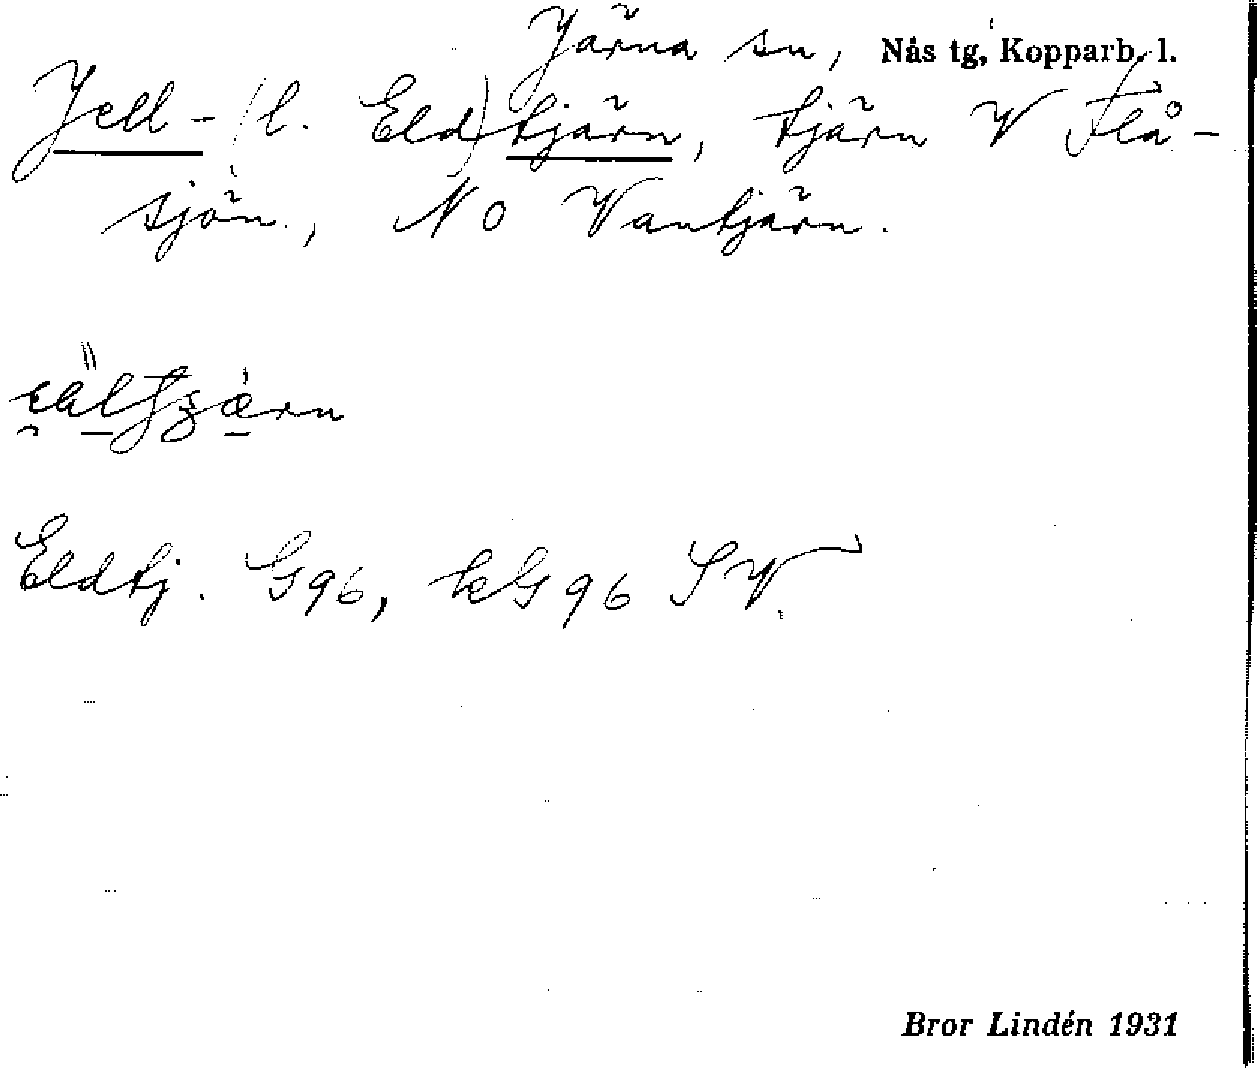 Järna sn, Nås tg, Kopparb. l.
Jell- (l. Eld)tjärn, tjärn V Flå-
sjön., NO Vantjärn.
Eldtj. G96, kG96 SV.
Bror Lindén 1931